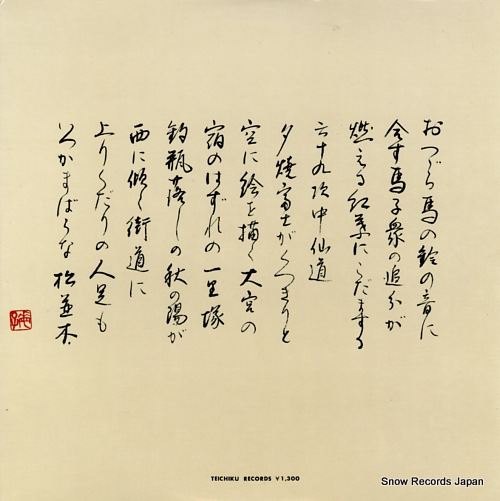 おつづら馬の鈴の音に
合す馬子衆の追分が
燃える紅葉にこだまする
六十九次中仙道
夕焼富士がくっきりと
空に絵を描く大宮の
宿のはずれの一里塚
釣瓶落しの秋の陽が
西に傾く街道に
上りくだりの人足も
いつかまばらな松並木
TEICHIKU RECORDS ¥1,300
Snow Records Japan